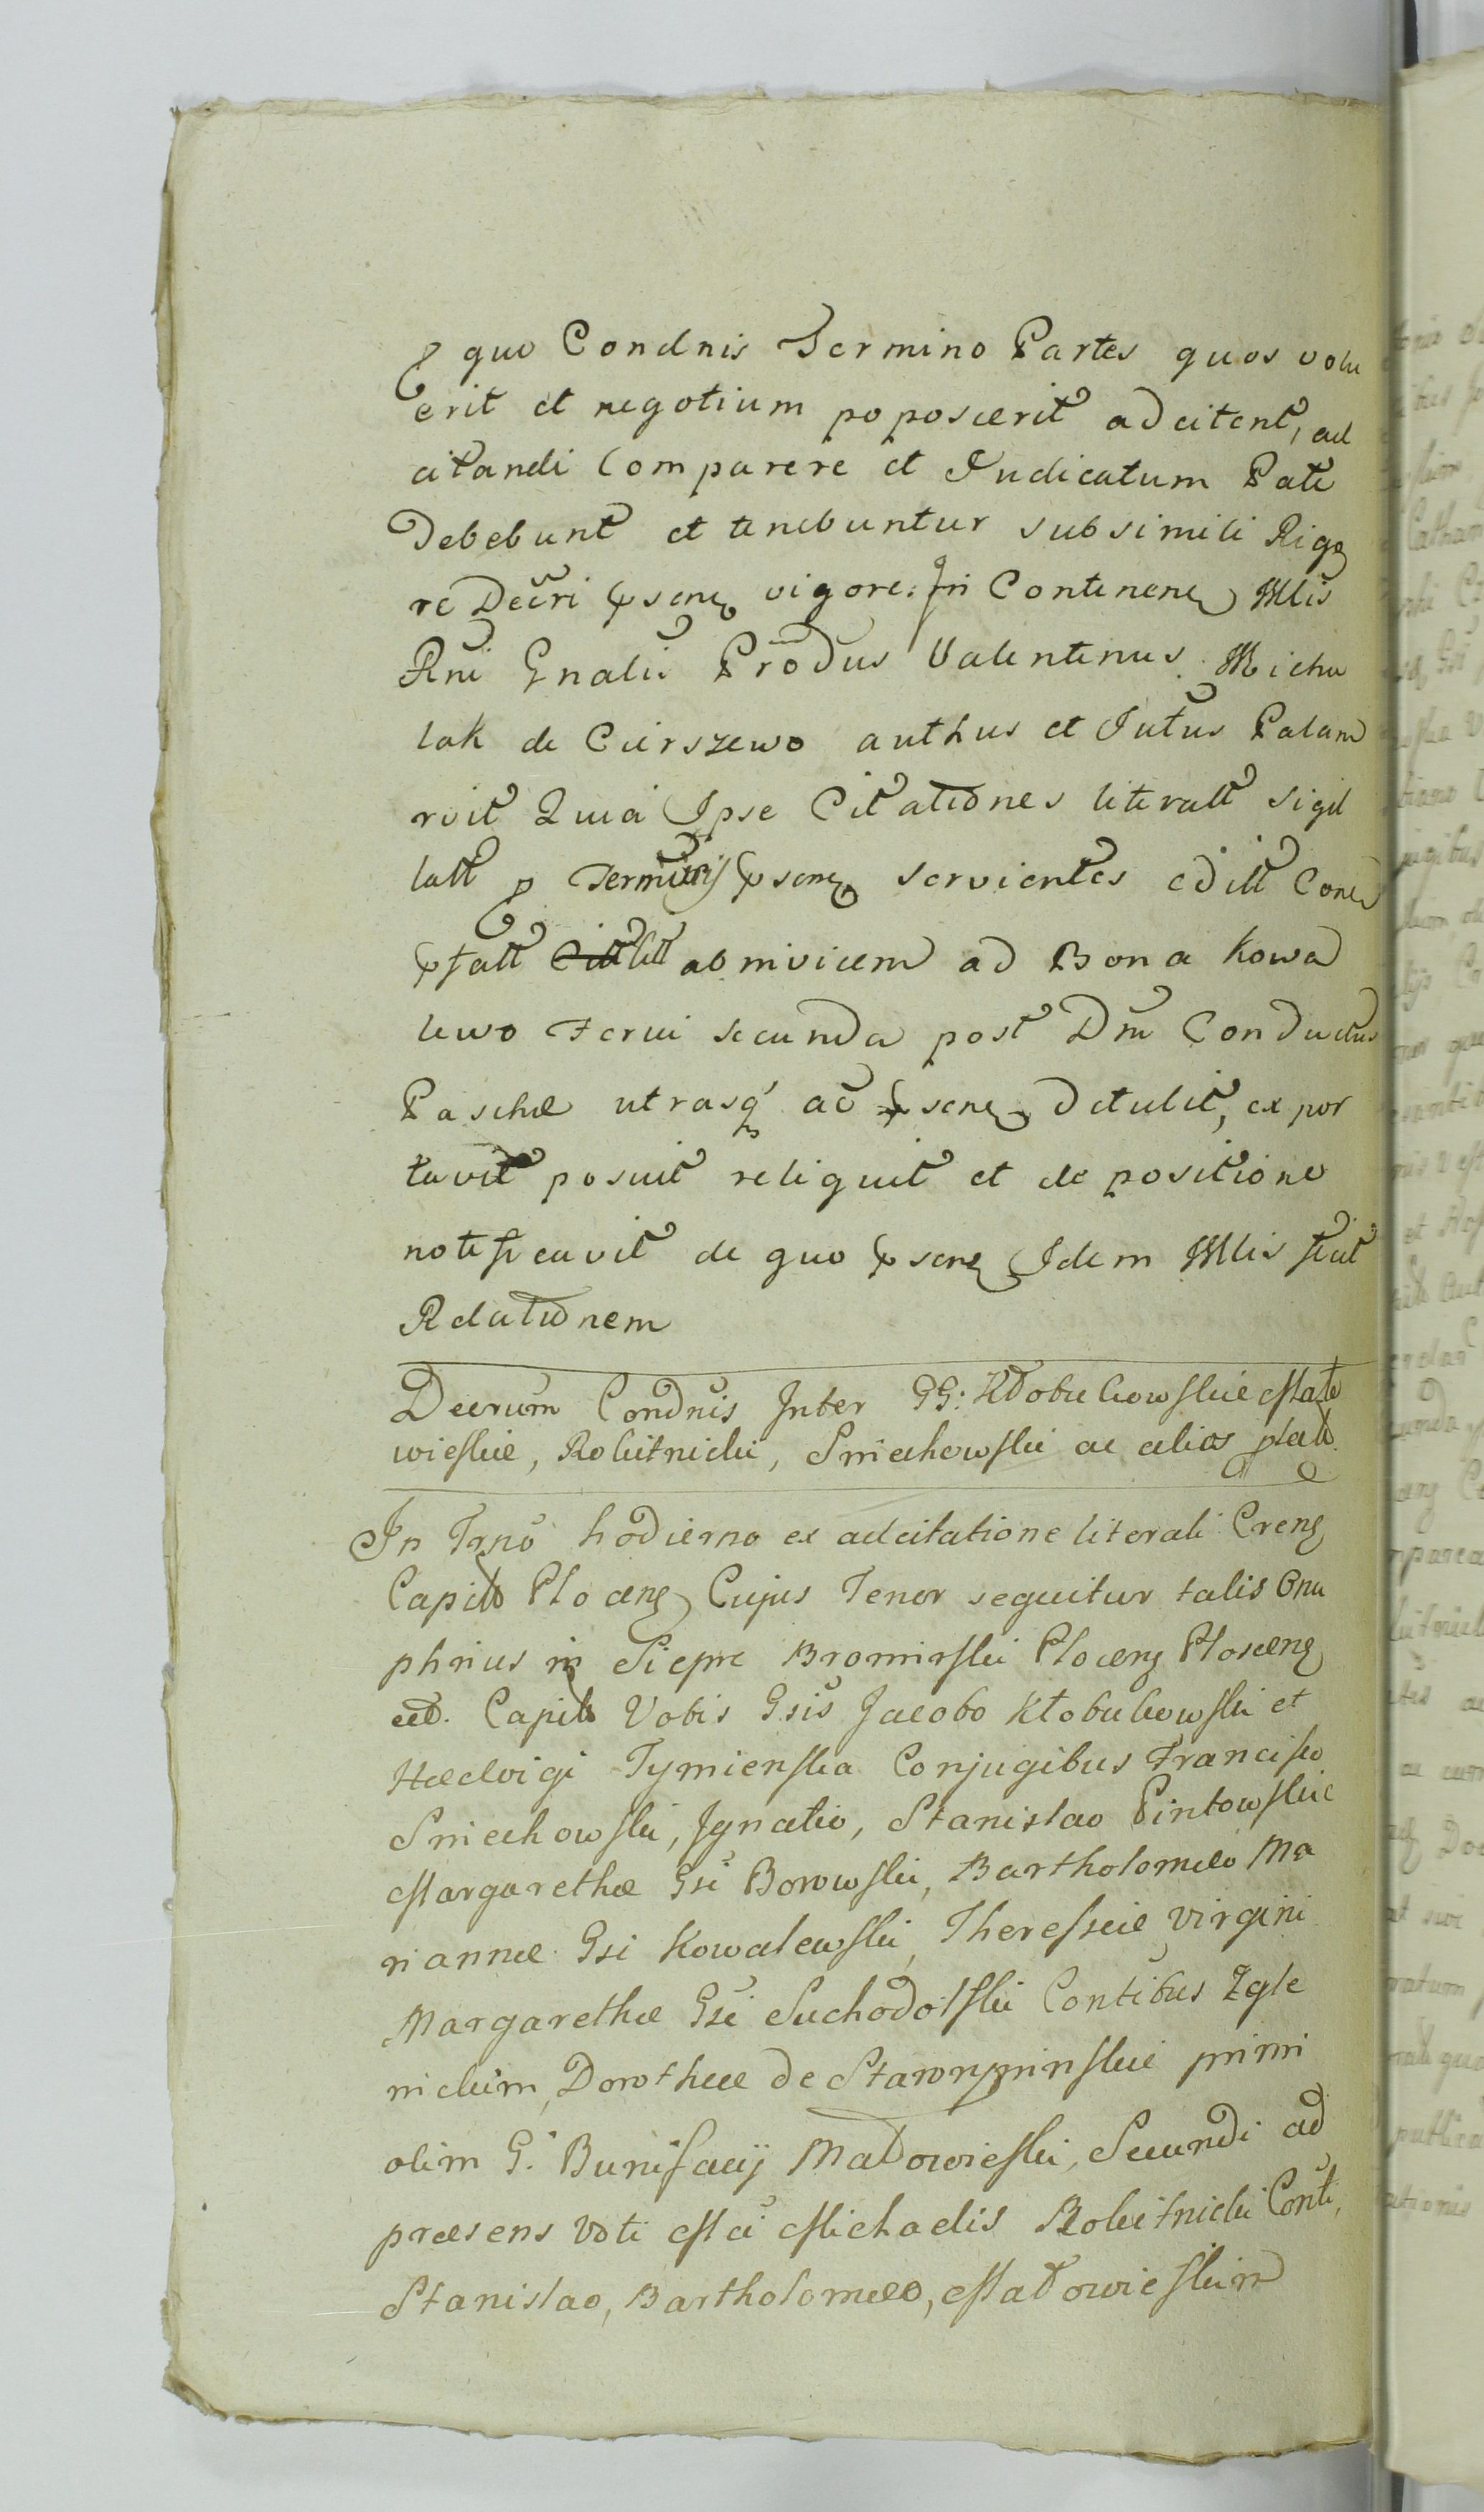 quo Condnis Termino Partes quos volu
erit et negotium poposcerit adcitent, ad
citandi Comparere et Judicatum Pati
Debebunt et tenebuntur sub simili Rigo
re Decri psene vigore. In Contenen Mlis
Rni Gnalis Produs Valentinus Micha
lak de Cierszewo authus et Jutus Palam
rvit Quia Ipse Citationes literatt sigil
latt p Terminis psene servientes editt Conc
ptatt abinvicem ad Bona Kowa
lewo Feria secunda post Dm Conductus
Paschæ utrasq ac psene Detulit, expor
tavit posuit reliquit et de positione
notificavit de quo psene Idem Mlis fecit
Relationem
Decrum Condnis Inter GG: Kłobukowskie Mała
wieskie, Rokitnicki, Sniechowski ac alios
In Trno hodierno ex adcitatione literali Crens
Capitli Plocens Cujus Tenor sequitur talis Onu
phrius in Siepre Bromirski Plocens
Capit Vobis Gsis Jacobo Kłobukowski et
Hedvigi Tymienska Conjugibus Francisco
Sniechowski, Ignatio, Stanislao Pintowskie
Margarethæ Gsi Borowski, Bartholomeo Ma
riannæ Gsi Kowalewski, Theressiæ virgini
Margarethæ Gsi Suchodolski Contibus Zgle
nickim, Dorotheæ de primi
olim G. Bunifacij Małowieski, Secundi ad
præsens voti Michaelis Rokitnicki Conti,
Stanislao, Bartholomeo, Małowieskim